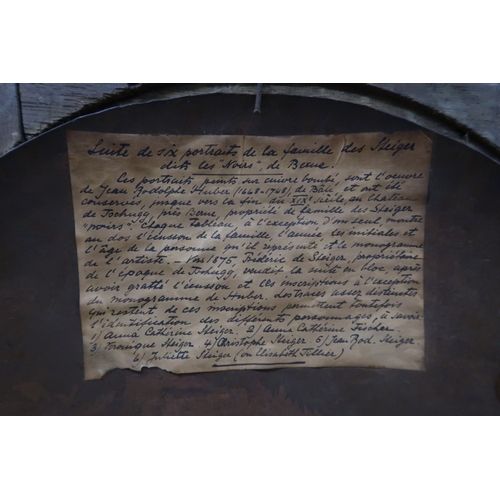 Suite de six portraits de la famille des Steiger
dits les "Noirs", de Berne.
Ces portraits, peints sur cuivre bombé, sont l'oeuvre
de Jean Rodolphe Huber (1668-1748) de Bâle, et ont été
conservés, jusque vers la fin du XIXe siècle, en Château
de Tschugg, près Berne, propriété de famille des Steiger
"noirs". Chaque tableau, à l'exception d'un seul montre
au dos l'écusson de la famille, l'année les initiales et
l'âge de la personne qu'il représente et le monogramme
de l'artiste. – Vers 1875, Frédéric de Steiger, propriétaire
de l'époque de Tschugg, vendit la suite en bloc, après
avoir gratté l'écusson et les inscriptions à l'exception
du monogramme de Huber. des traces assez distinctes
qui restent de ces inscriptions permettent toutefois
l'identification des différents personnages, à savoir
1) Anna Cathérine Steiger. 2) Anna Cathérine Fischer.
3) Véronique Steiger 4) Christophe Steiger 5) Jean Rod. Steiger
6) Juliette Steiger (ou Elisabeth Tillier)